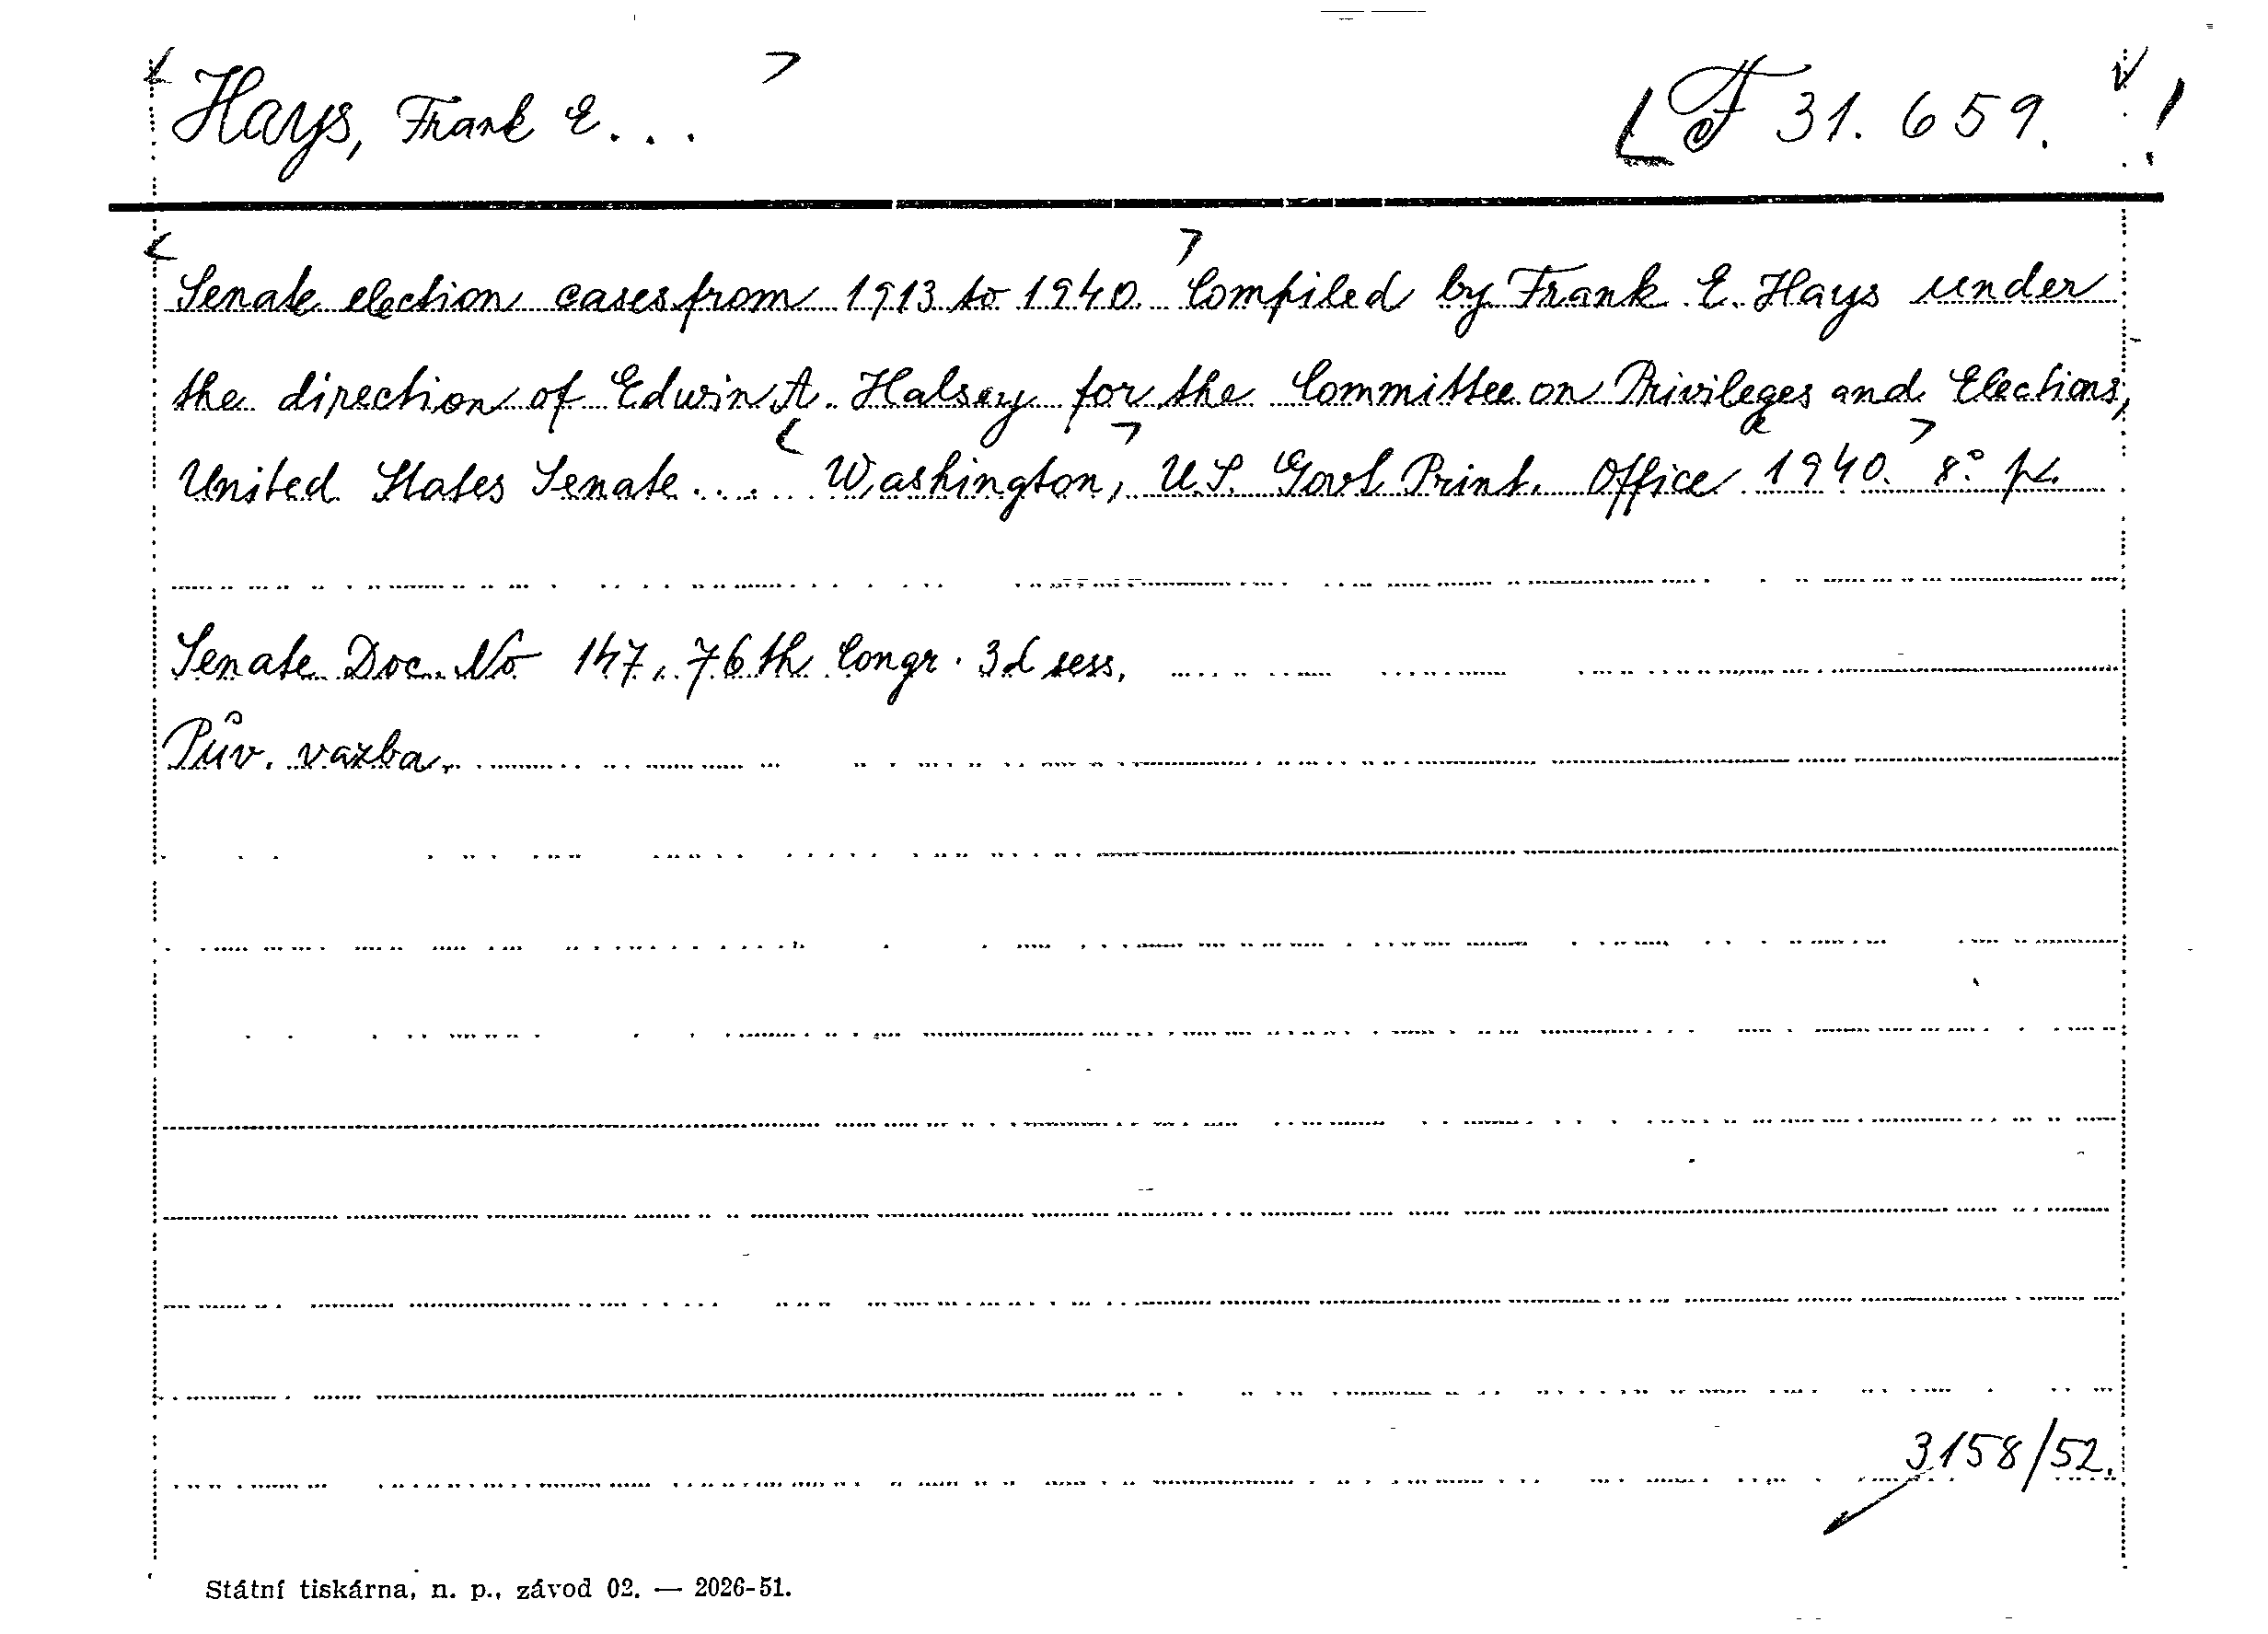 Hays, Frank E... F 31.659.
Senate election cases from 1913 to 1940. Compiled by Frank E. Hays under
the direction of Edwin A. Halsey for the Committee on Privileges and Elections,
United States Senate.... Washington, U.S. Govt Print. Office 1940. 8°
Senate Doc. No 147, 76th Congr. 3d sess.
Pův. vazba.
3158/52.
Státní tiskárna, n. p., závod 02. — 2026-51.